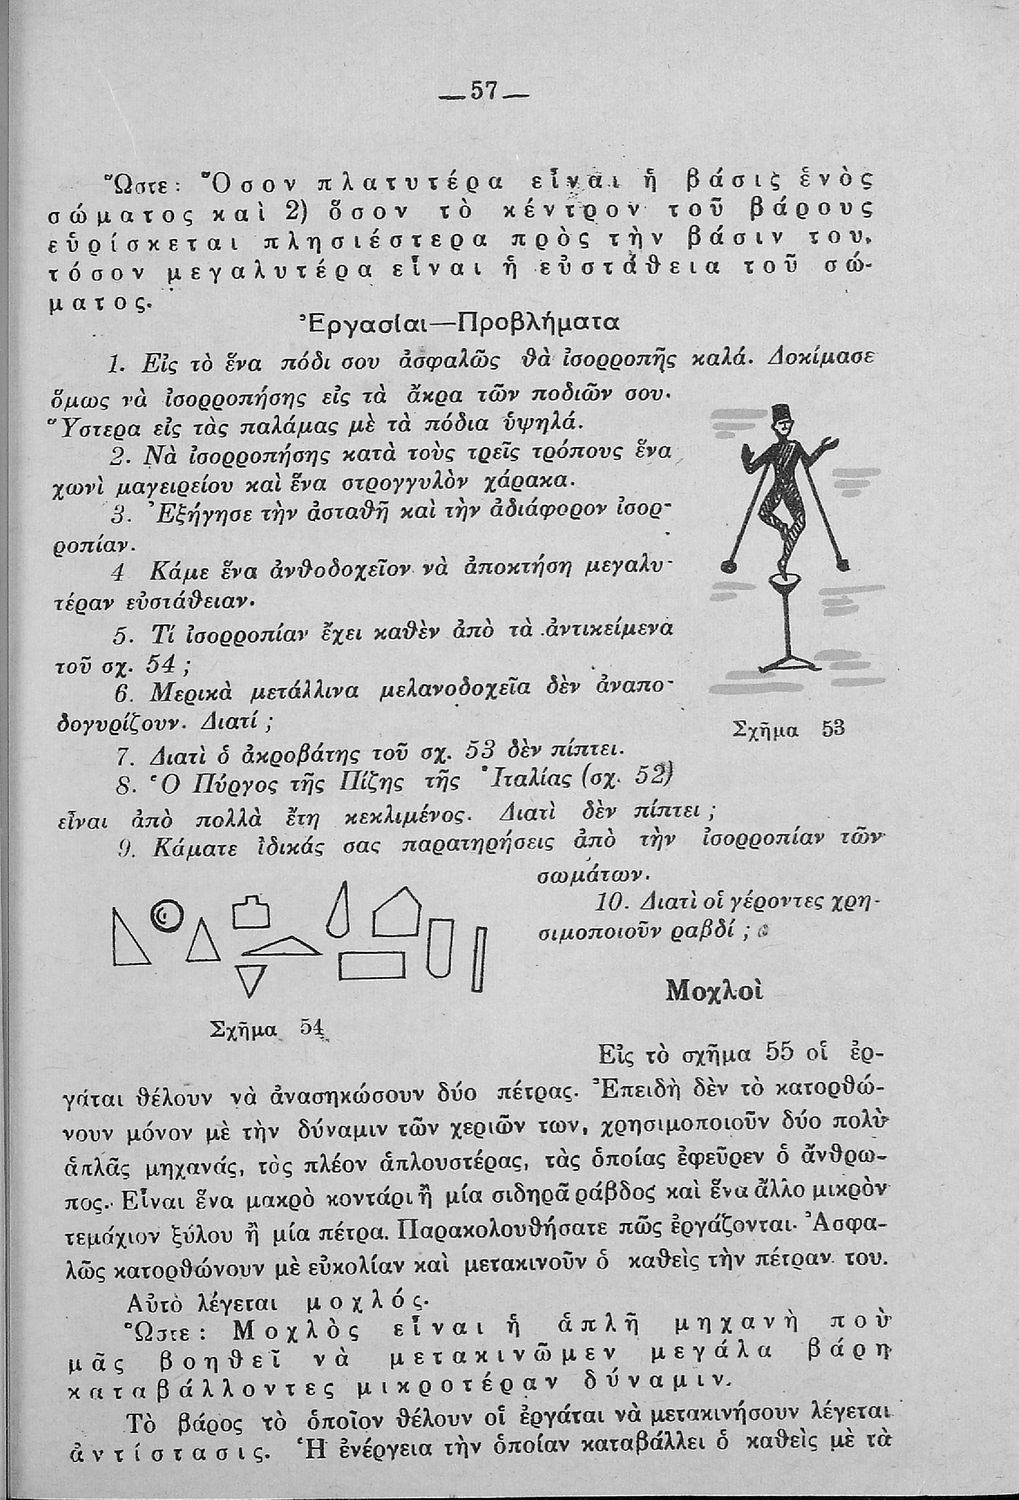 —57—
Ὥστε: Ὅσον πλατυτέρα εἶναι ἡ βάσις ἑνὸς
σώματος καὶ 2) ὅσον τὸ κέντρον τοῦ βάρους
εὑρίσκεται πλησιέστερα πρὸς τὴν βάσιν του,
τόσον μεγαλυτέρα εἶναι ἡ εὐστάθεια τοῦ σώ-
ματος.
Ἐργασίαι—Προβλήματα
1. Εἰς τὸ ἕνα πόδι σου ἀσφαλῶς θὰ ἰσορροπῇς καλά. Δοκίμασε
ὅμως νὰ ἰσορροπήσης εἰς τὰ ἄκρα τῶν ποδιῶν σου.
Ὕστερα εἰς τὰς παλάμας μὲ τὰ πόδια ὑψηλά.
2. Νὰ ἰσορροπήσης κατὰ τοὺς τρεῖς τρόπους ἕνα
χωνὶ μαγειρείου καὶ ἕνα στρογγυλὸν χάρακα.
3. Ἐξήγησε τὴν ἀσταθῆ καὶ τὴν ἀδιάφορον ἰσορ-
ροπίαν.
4 Κάμε ἕνα ἀνθοδοχεῖον νὰ ἀποκτήση μεγαλυ-
τέραν εὐστάθειαν.
5. Τί ἰσορροπίαν ἔχει καθὲν ἀπὸ τὰ ἀντικείμενα
τοῦ σχ. 54 ;
6. Μερικὰ μετάλλινα μελανοδοχεῖα δὲν ἀναπο-
δογυρίζουν. Διατί ;
7. Διατὶ ὁ ἀκροβάτης τοῦ σχ. 53 δὲν πίπτει.
Σχῆμα 53
8. Ὁ Πύργος τῆς Πίζης τῆς Ἰταλίας (σχ. 52)
εἶναι ἀπὸ πολλὰ ἔτη κεκλιμένος. Διατὶ δὲν πίπτει ;
9. Κάματε ἰδικάς σας παρατηρήσεις ἀπὸ τὴν ἰσορροπίαν τῶν
σωμάτων.
10. Διατὶ οἱ γέροντες χρη-
σιμοποιοῦν ραβδί ;
Σχῆμα 54
Μοχλοὶ
Εἰς τὸ σχῆμα 55 οἱ ἐρ-
γάται θέλουν νὰ ἀνασηκώσουν δύο πέτρας. Ἐπειδὴ δὲν τὸ κατορθώ-
νουν μόνον μὲ τὴν δύναμιν τῶν χεριῶν των, χρησιμοποιοῦν δύο πολὺ
ἁπλᾶς μηχανάς, τὰς πλέον ἁπλουστέρας, τὰς ὁποίας ἐφεῦρεν ὁ ἄνθρω-
πος. Εἶναι ἕνα μακρὸ κοντάρι ἢ μία σιδηρᾶ ράβδος καὶ ἕνα ἄλλο μικρὸν
τεμάχιον ξύλου ἢ μία πέτρα. Παρακολουθήσατε πῶς ἐργάζονται. Ἀσφα-
λῶς κατορθώνουν μὲ εὐκολίαν καὶ μετακινοῦν ὁ καθεὶς τὴν πέτραν του.
Αὐτὸ λέγεται μοχλός.
Ὥστε: Μοχλὸς εἶναι ἡ ἁπλῆ μηχανὴ ποὺ
μᾶς βοηθεῖ νὰ μετακινῶμεν μεγάλα βάρη
καταβάλλοντες μικροτέραν δύναμιν.
Τὸ βάρος τὸ ὁποῖον θέλουν οἱ ἐργάται νὰ μετακινήσουν λέγεται
ἀντίστασις. Ἡ ἐνέργεια τὴν ὁποίαν καταβάλλει ὁ καθεὶς μὲ τὰ